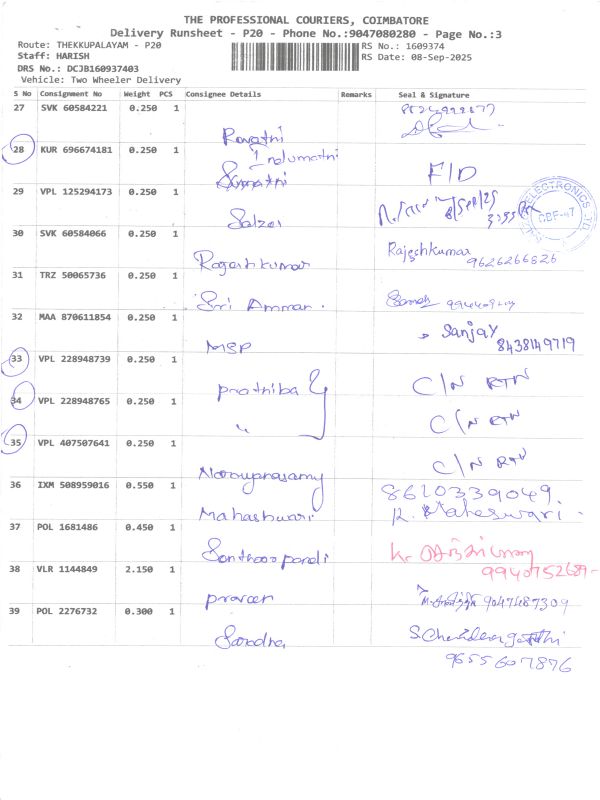 THE PROFESSIONAL COURIERS, COIMBATORE
Delivery Runsheet - P20 - Phone No.:9047080280 - Page No.:3
Route: THEKKUPALAYAM - P20
RS No.: 1609374
Staff: HARISH
RS Date: 08-Sep-2025
DRS No.: DCJB160937403
Vehicle: Two Wheeler Delivery
S No Consignment No Weight PCS Consignee Details Remarks Seal & Signature
27 SVK 60584221 0.250 1
Revathi
28 KUR 696674181 0.250 1
Indumathi
Sumathi F/D
29 VPL 125294173 0.250 1
Salzer
30 SVK 60584066 0.250 1 Rajeshkumar
Rajeshkumar 9626266626
31 TRZ 50065736 0.250 1
Sri Amman.
32 MAA 870611854 0.250 1 Sanjay
MSP 8438149719
33 VPL 228948739 0.250 1
Prathiba C/N RTN
34 VPL 228948765 0.250 1
" C/N RTN
35 VPL 407507641 0.250 1
C/N RTN
36 IXM 508959016 0.550 1 8610339049.
Maheshwari K. Maheswari.
37 POL 1681486 0.450 1
9940752689-
38 VLR 1144849 2.150 1
praveen 9047487309
39 POL 2276732 0.300 1
Saradha
9655607876